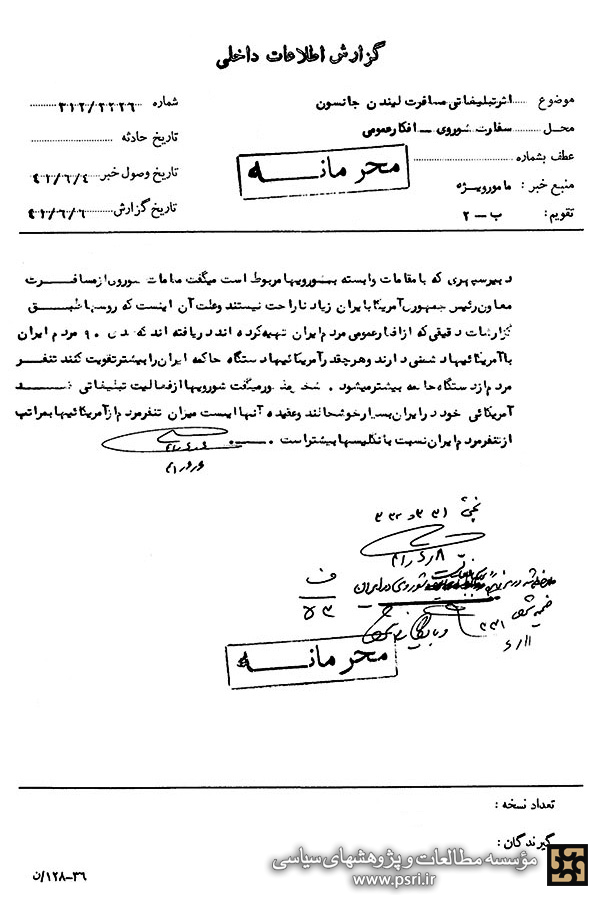 گزارش اطلاعات داخلی
موضوع ..... اثر تبلیغاتی مسافرت لیندن جانسون
شماره ..... ۳۱۲/۲۲۲۶
محل ..... سفارت شوروی - افکار عمومی
تاریخ حادثه
عطف بشماره
تاریخ وصول خبر ۴۱/۶/۴
منبع خبر : مامور ویژه
تاریخ گزارش ۴۱/۶/۶
تقویم : ب - ۲
محرمانه
دبیر سپهری که با مقامات وابسته بشورویها مربوط است میگفت مقامات شوروی از مسافرت
معاون رئیس جمهوری آمریکا بایران زیاد ناراحت نیستند وعلت آن اینست که روسها طبق
گزارشات دقیقی که از افکار عمومی مردم ایران تهیه کرده اند دریافته اند که ۹۰ مردم ایران
با آمریکائیها دشمنی دارند وهر چقدر آمریکائیها دستگاه حاکمه ایران را بیشتر تقویت کنند تنفر
مردم از دستگاه حاکمه بیشتر میشود . شخص مذکور میگفت شورویها از فعالیت تبلیغاتی ضد
آمریکائی خود در ایران بسیار خوشحالند وعقیده آنها اینست میزان تنفر مردم از آمریکائیها بمراتب
از تنفر مردم ایران نسبت بانگلیسها بیشتر است .
۴۱/۶/۶
بخش ۳۳۱ و ۳۳۲
۴۱/۶/۸
شوروی در ایران
ف
۵۳
۳۳۱
۶/۱۱
محرمانه
تعداد نسخه :
گیرندگان :
مؤسسه مطالعات و پژوهشهای سیاسی
www.psri.ir
۳۶-۱۲۸/ن